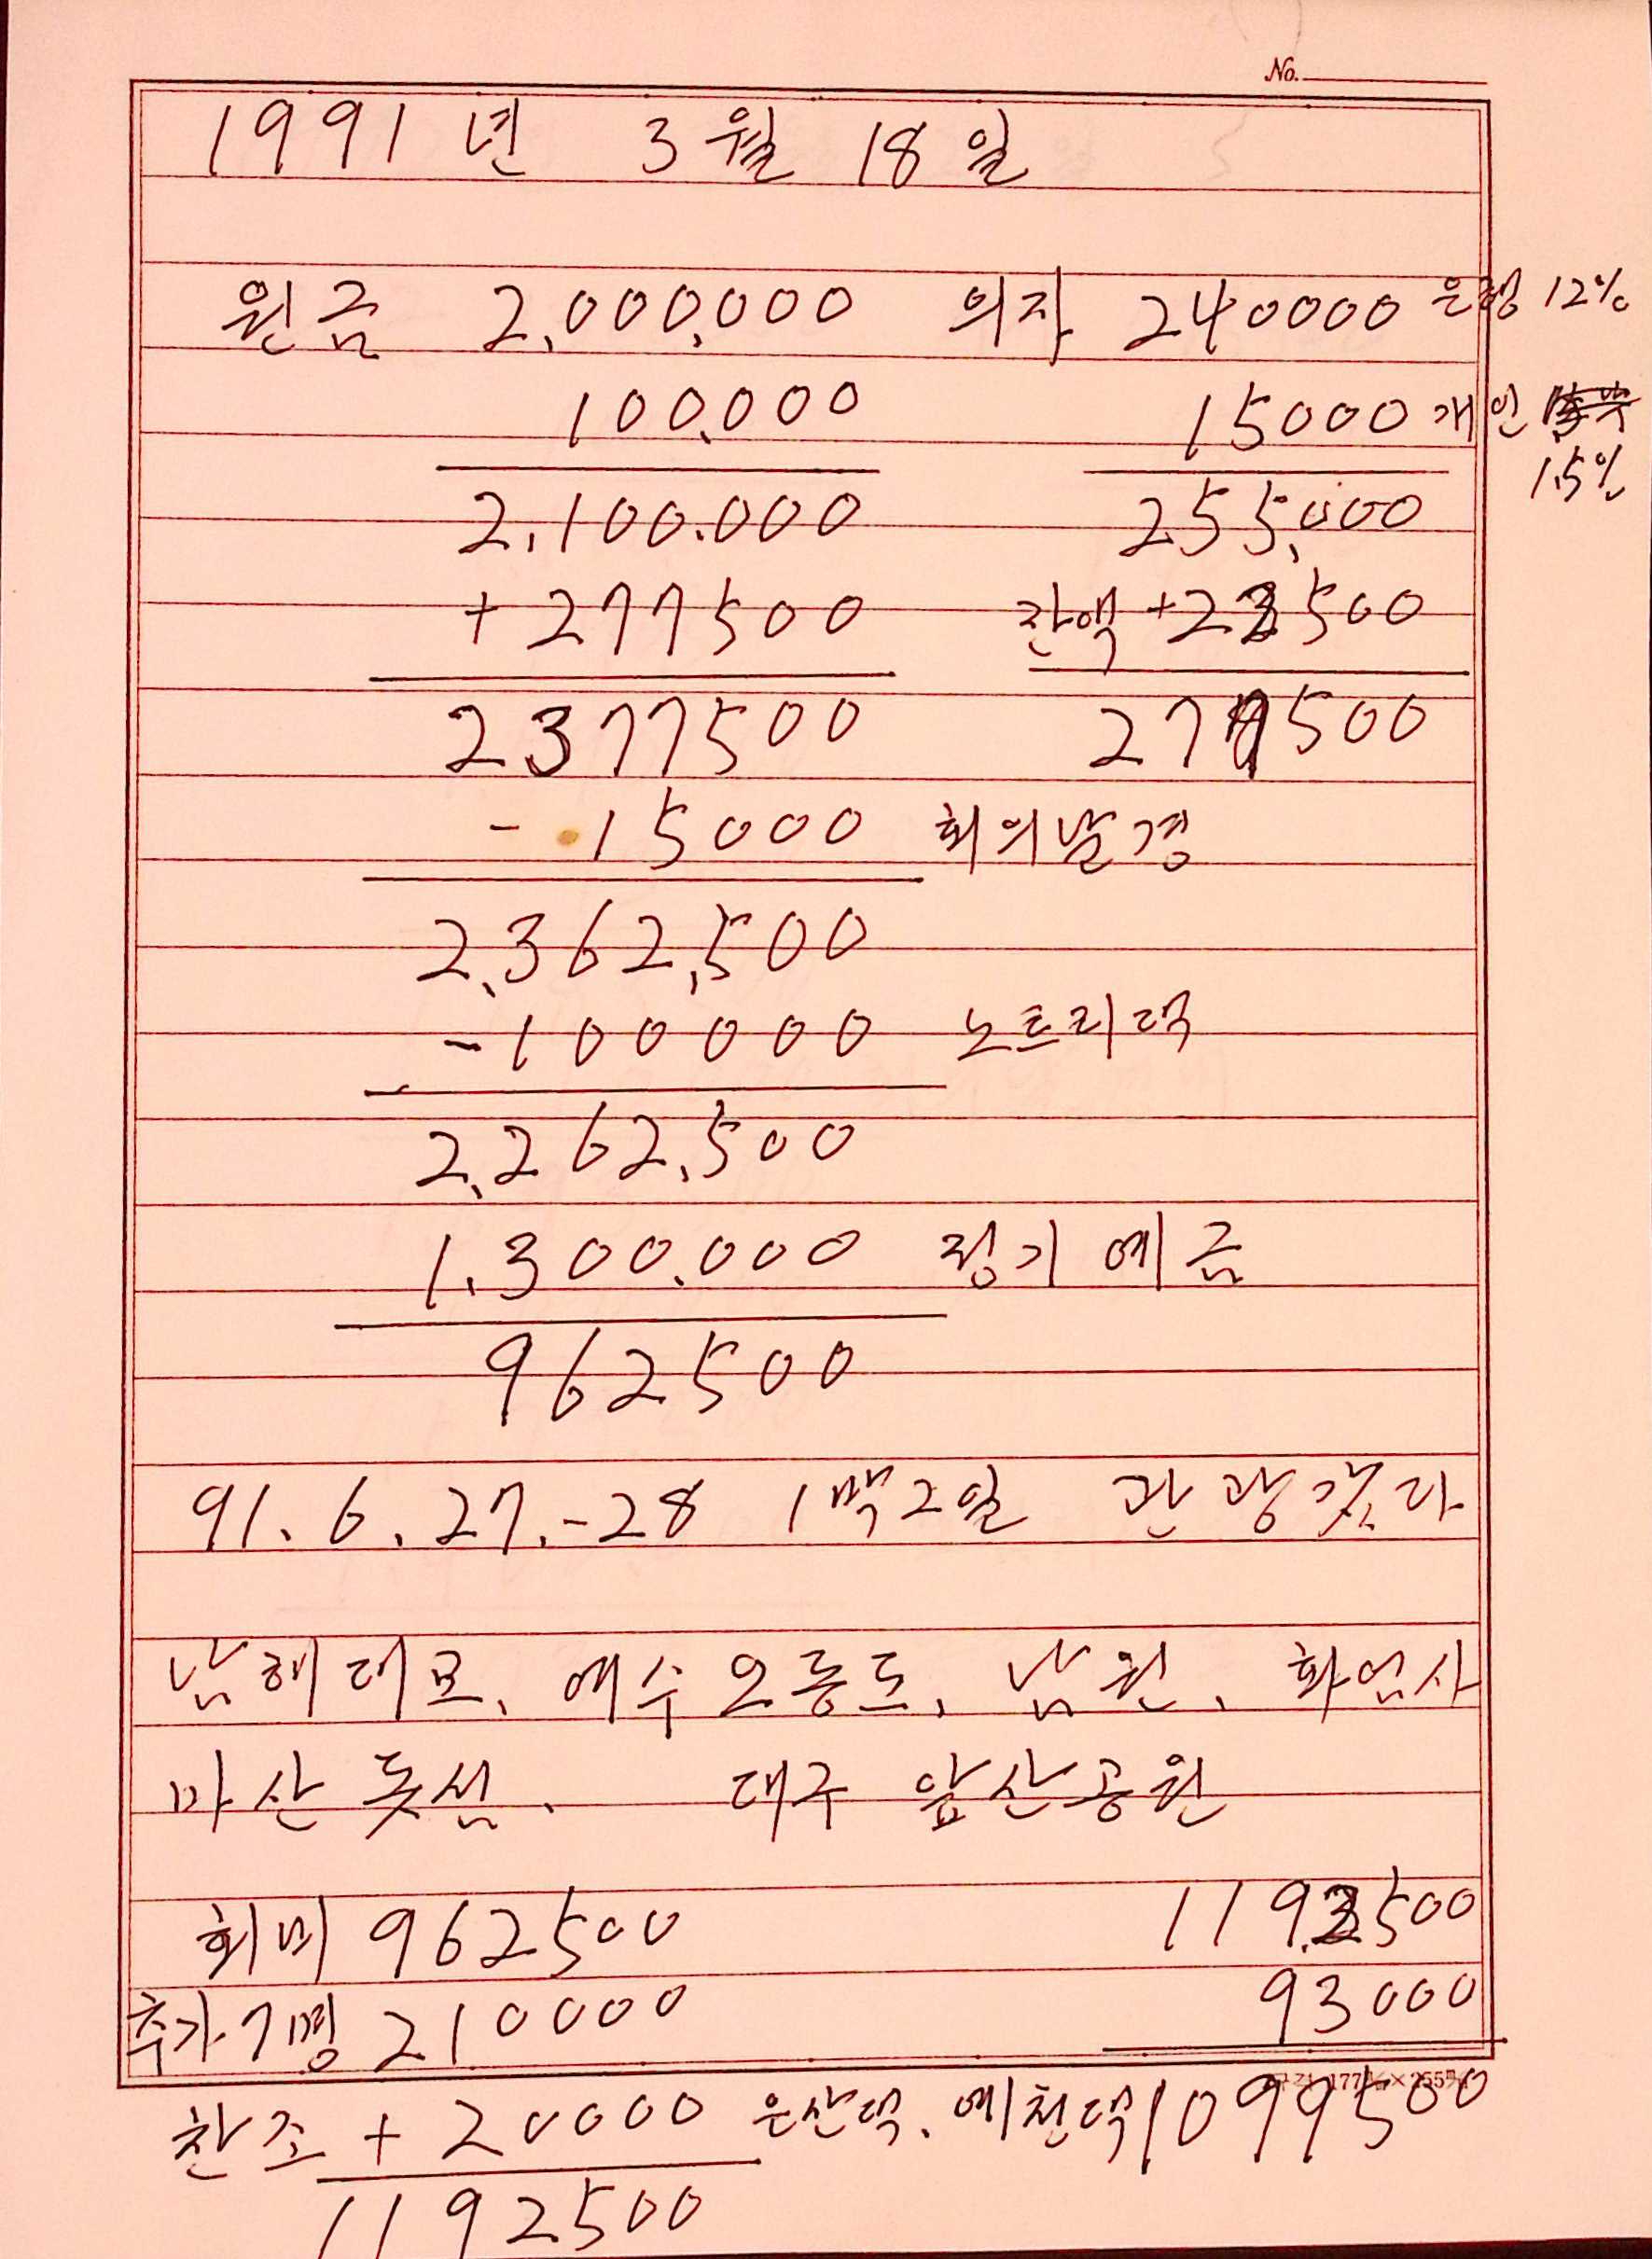 No.
1991년 3월 18일
원금 2,000,000 의자 240000 은행 12%
100,000 15000 개인
1.5%
2,100.000 255,000
+ 277500 잔액 +22500
2377500 277500
- 15000 회의날경
2,362,500
-100000 노트리댁
2,262,500
1,300.000 정기예금
962500
91. 6. 27.-28 1백2일 관광갔다
남해대교, 여수오동도, 남원, 화엄사
마산돗섬, 대구 앞산공원
회비 962500 1192500
추가7명 210000 93000
찬조 + 20000 온산댁, 예천댁 1099500
1192500